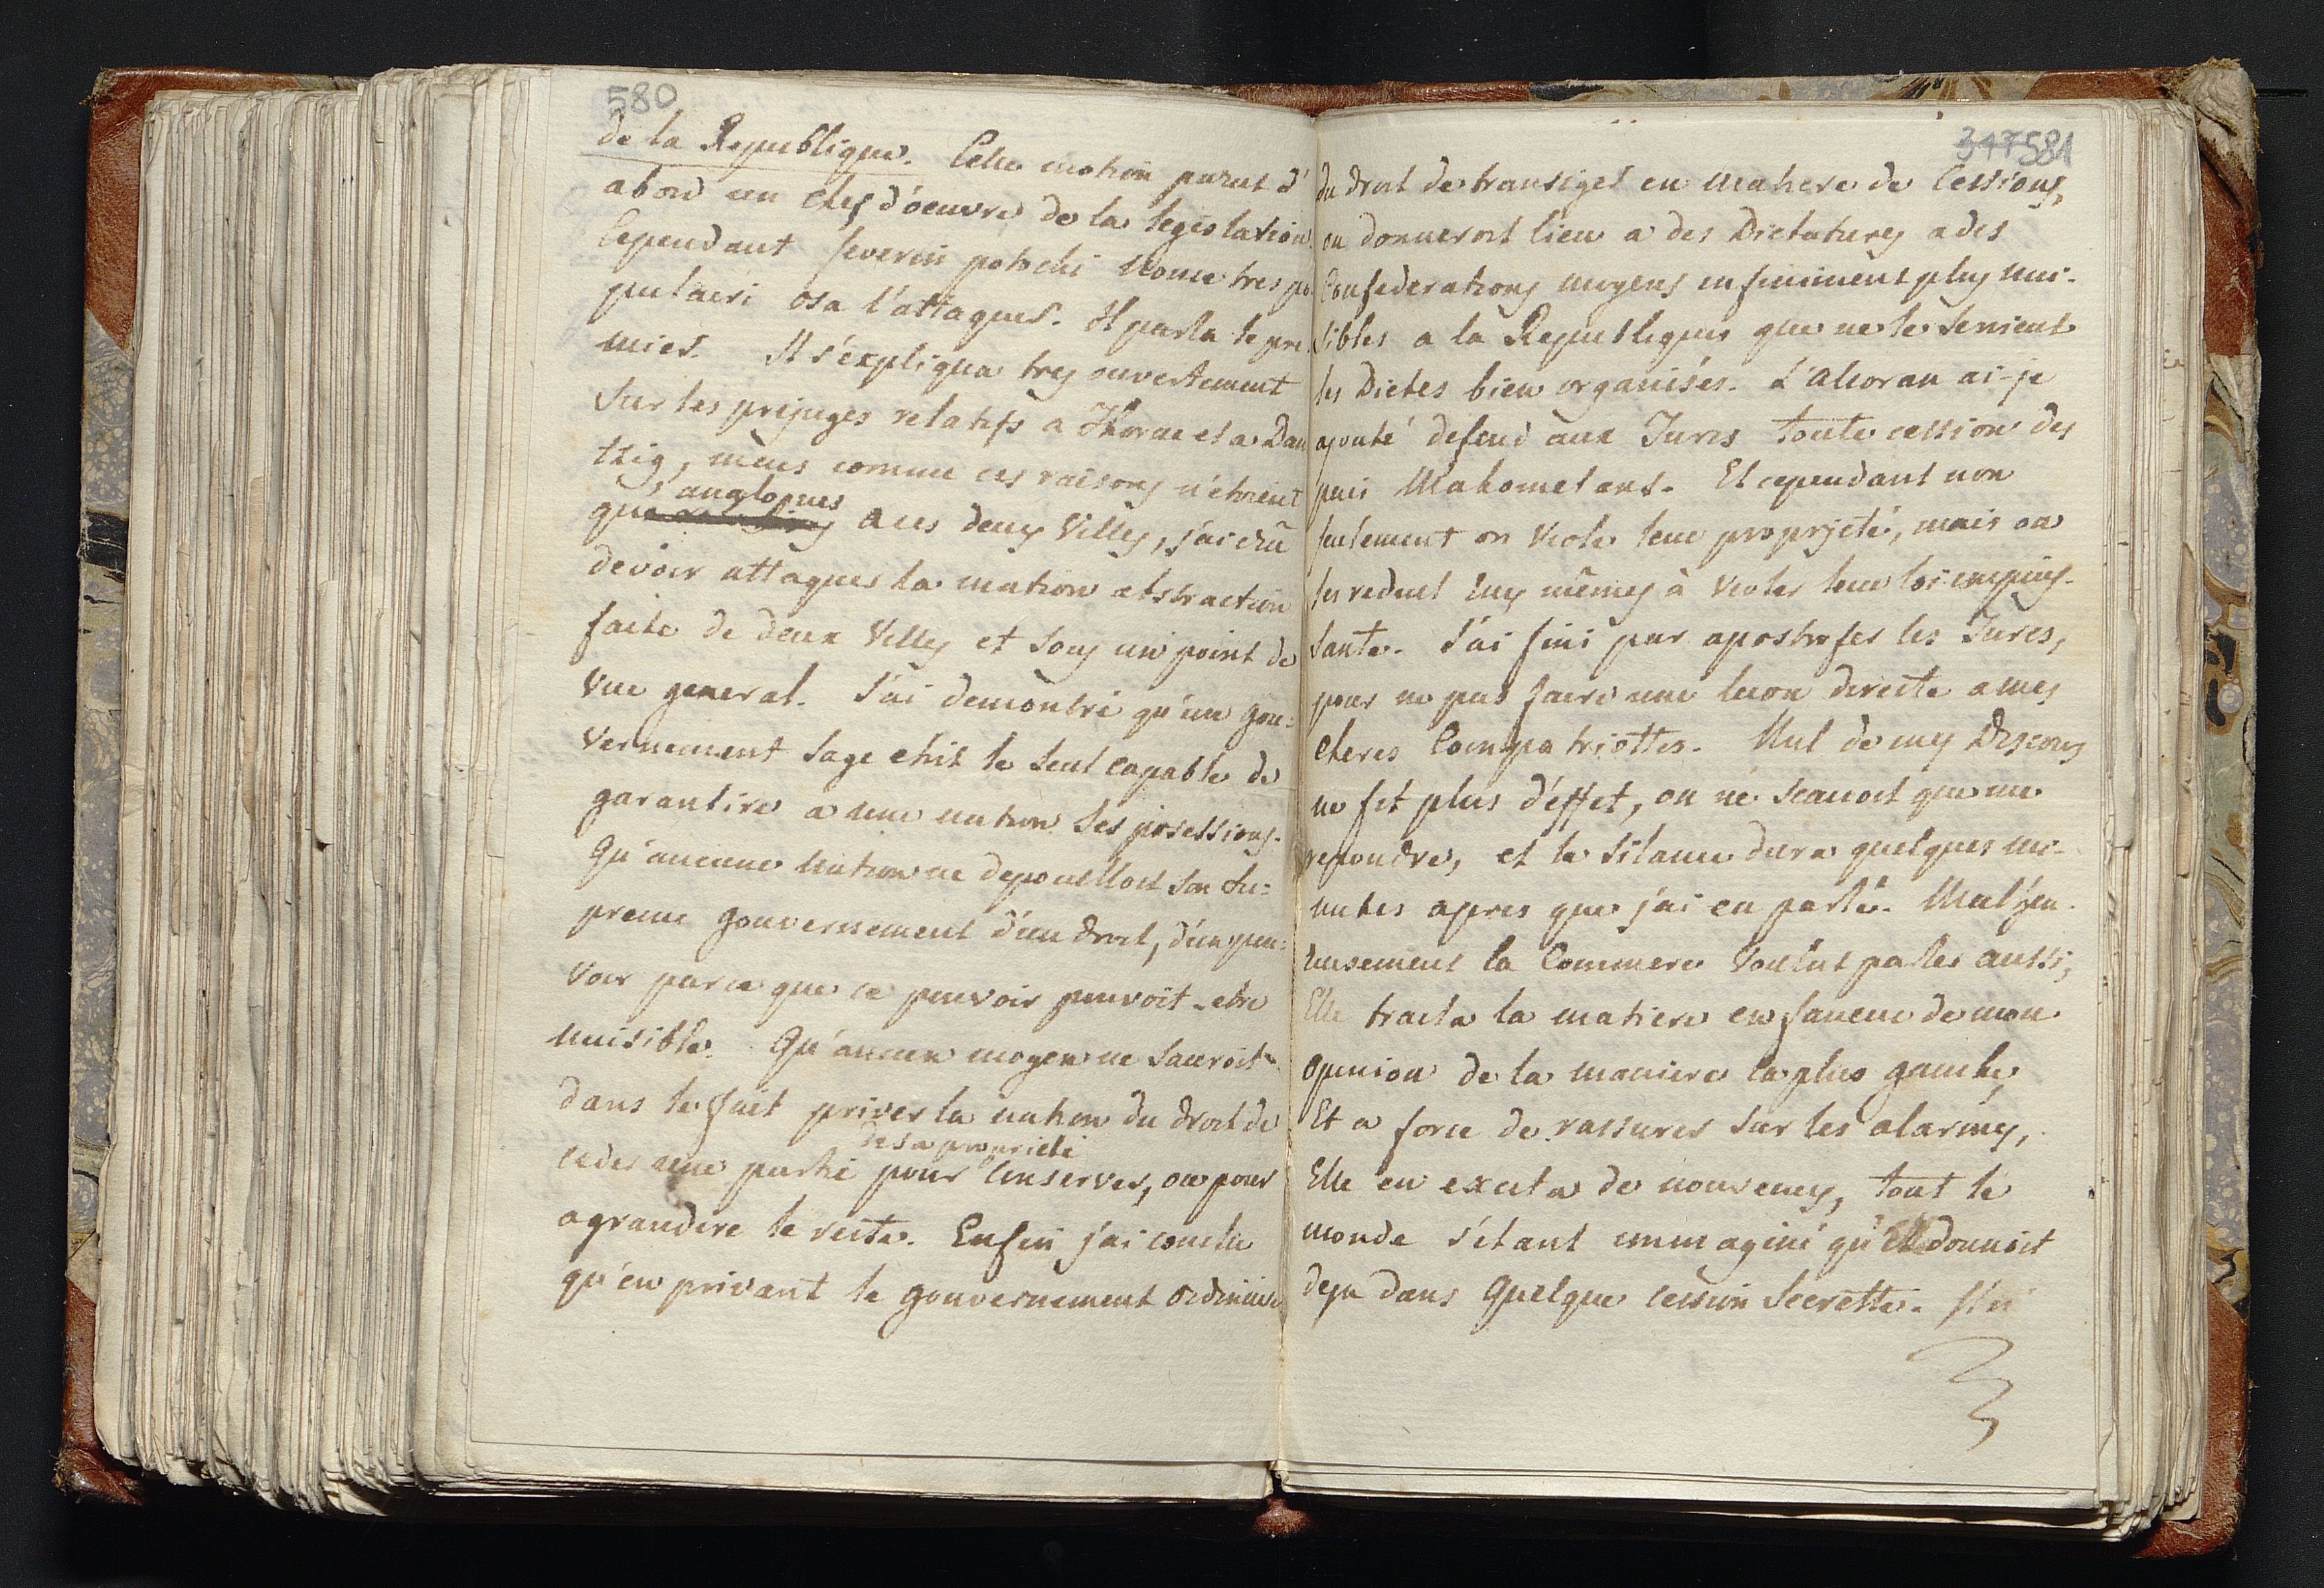 580
de la Republique. Cette motion parut d'
abord un chef d'oeuvre de la legislation.
Cependant Severin potocki Nonce tres po-
pulaire osa l'attaquer. Il parla le pre-
mier. Il s'expliqua tres ouvertement
Sur les prejuges relatifs a Thorne et a Dan
tzig, mais comme ces raisons n'etoient
analogues
que a ces deux Villes, j'ai crû
devoir attaquer la motion abstraction
faite de deux Villes et sous un point de
Vue general. J'ai demontré qu'un gou-
vernement sage etoit le seul capable de
garantire a une nation ses posessions.
Qu'aucune Nation ne depouilloit son su-
preme gouvernement d'un droit, d'un pou-
voir parce que ce pouvoir pouvoit-etre
nuisible. Qu'aucun moyen ne sauroit
dans le fait priver la nation du droit de
de sa proprieté
ceder une partie pour conserver, ou pour
agrandire le reste. Enfin j'ai conclu
qu'en privant le gouvernement ordinaire
347 581
du droit de transiger en matiere de Cessions,
on donneroit lieu a des Dictatures a des
Confederations moyens infiniment plus nui-
sibles a la Republique que ne le seroient
les Dietes bien organisés. L'Alcoran ai-je
ajouté defend aux Turcs toute cession des
païs Mahometans. Et cependant non
seulement on viole leur proprjeté, mais on
les reduit eux mêmes à violer leur loi impuis-
sante. J'ai fini par apostrofer les Turcs,
pour ne pas faire une lecon directe a mes
cheres Compatriottes. Nul de mes Discours
ne fit plus d'éffet, on ne scauoit que me
repondre, et le silance dura quelques mi-
nutes apres que j'ai eu parlé. Malheu-
reusement la Commere voulut parler aussi,
Elle traita la matiere en faueur de mon
Opinion de la maniere la plus gauche,
Et a force de rassurer sur les alarmes,
Elle en excita de nouveaux, tout le
monde s'étant immaginé qu'Elle donnoit
deja dans Quelque cession Secrette.